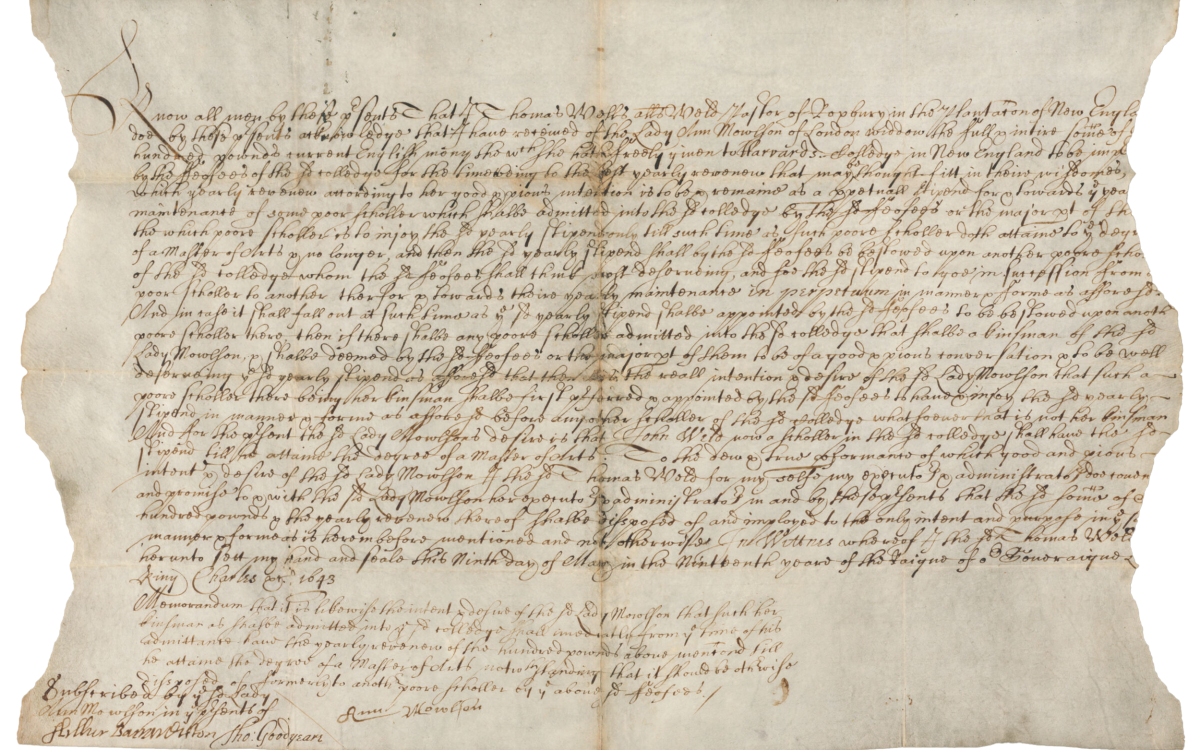 Know all men by these p'sents That I Thomas Wells als Weld Pastor of Roxbury in the Plantacon of New Engla
doe by these p'sents acknowledge that I have received of the Lady Ann Mowlson of London widdow the full & intire some of
hundred pownds current English mony the wch she hath freely given to Harvards Colledge in New England to be im
by the feofees of the sd colledge for the time being to the best yearly revenew that may be thought fitt in theire wisdomes,
which yearly revenew according to her good & pious intention is to be & remaine as a p'petuall stipend for & towards ye yea
maintenance of some poor scholler which shalbe admitted into the sd colledge by the sd feofees or the major pt of th
the which poore scholler is to injoy the sd yearly stipend only till such time as such poore scholler doth attaine to ye degr
of a Master of Arts & no longer, and then the sd yearly stipend shall by the sd feofees be bestowed upon another poore scho
of the sd colledge whom the sd feofees shall think most deserving, and soe the sd stipend to goe in succession from
poor scholler to another therfor & towards theire yearly maintenance in perpetuum in manner & forme as afforesd
And in case it shall fall out at such time as ye sd yearly stipend shalbe appointed by the sd feofees to be bestowed upon anoth
poore scholler there, then if there shalbe any poore scholler admitted into the sd colledge that shalbe a kinsman of the sd
Lady Mowlson, & shalbe deemed by the sd feofees or the major pt of them to be of a good & pious conversation & to be well
deserving ye sd yearly stipend as afforesd that then it is the reall intention & desire of the sd Lady Mowlson that such a
poore scholler there being her kinsman shalbe first p'ferred & appointed by the sd feofees to have & injoy the sd yearly
stipend, in manner & forme as afforesd before any other scholler of the sd colledge whatsoever that is not her kinsman
And for the p'sent the sd Lady Mowlsons desire is that John Weld now a scholler in the sd colledge shall have the sd
stipend till he attaine the degree of a Master of Arts To the dew & true p'formance of which good and pious
intent & desire of the sd Lady Mowlson I the sd Thomas Weld for my selfe my executors & administrators doe coven
and promise to & with the sd Lady Mowlson her executors & administrators in and by these p'sents that the sd some of
hundred pownds & the yearly revenew thereof shalbe disposed of and imployed to the only intent and purpose in ye
manner & forme as is herein before mentioned and not otherwise In Wittnes whereof I the sd Thomas Weld
herunto sett my hand and seale this Ninth day of May in the Nineteenth yeare of the Raigne of or Soveraigne
King Charles &c. 1643
Memorandum that it is likewise the intent & desire of the sd Lady Mowlson that such her
kinsman as shalbe admitted into ye sd colledge shall imediatly from ye time of his
admittance have the yearly revenew of the hundred pownds above menconed till
he attaine the degree of a Master of Arts notwthstanding that it should be otherwise
disposed of formerly to another poore scholler by ye above sd feofees /
Subscribed by ye sd Lady
Ann Mowlson in ye p'sents of
Ann Mowlson
Arthur Barnardiston Tho: Goodyeare